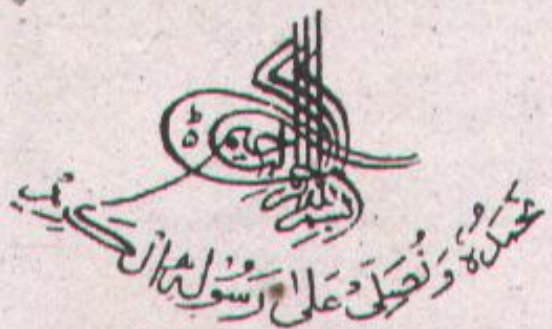 بسم الله الرحمن الرحيم
نحمدهٗ ونصلی علیٰ رسولہ الکریم